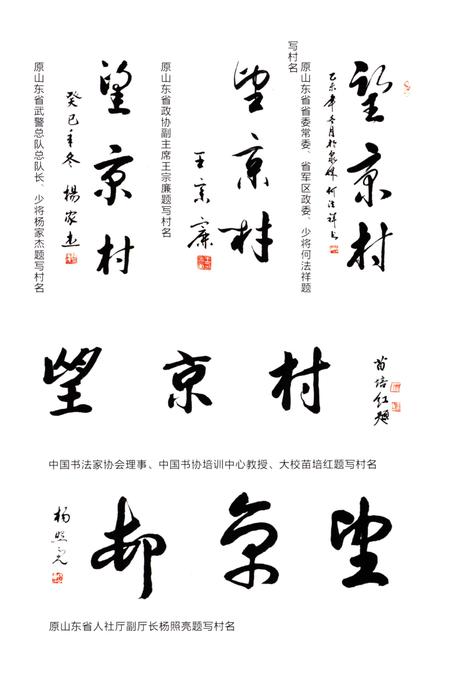 望京村
乙未年冬月於泉城 何法祥书
原山东省省委常委、省军区政委、少将何法祥题
写村名
望京村
王宗廉
原山东省政协副主席王宗廉题写村名
望京村
癸巳年冬 杨家杰
原山东省武警总队总队长、少将杨家杰题写村名
望京村
苗培红题
中国书法家协会理事、中国书协培训中心教授、大校苗培红题写村名
望京邨
杨照亮
原山东省人社厅副厅长杨照亮题写村名